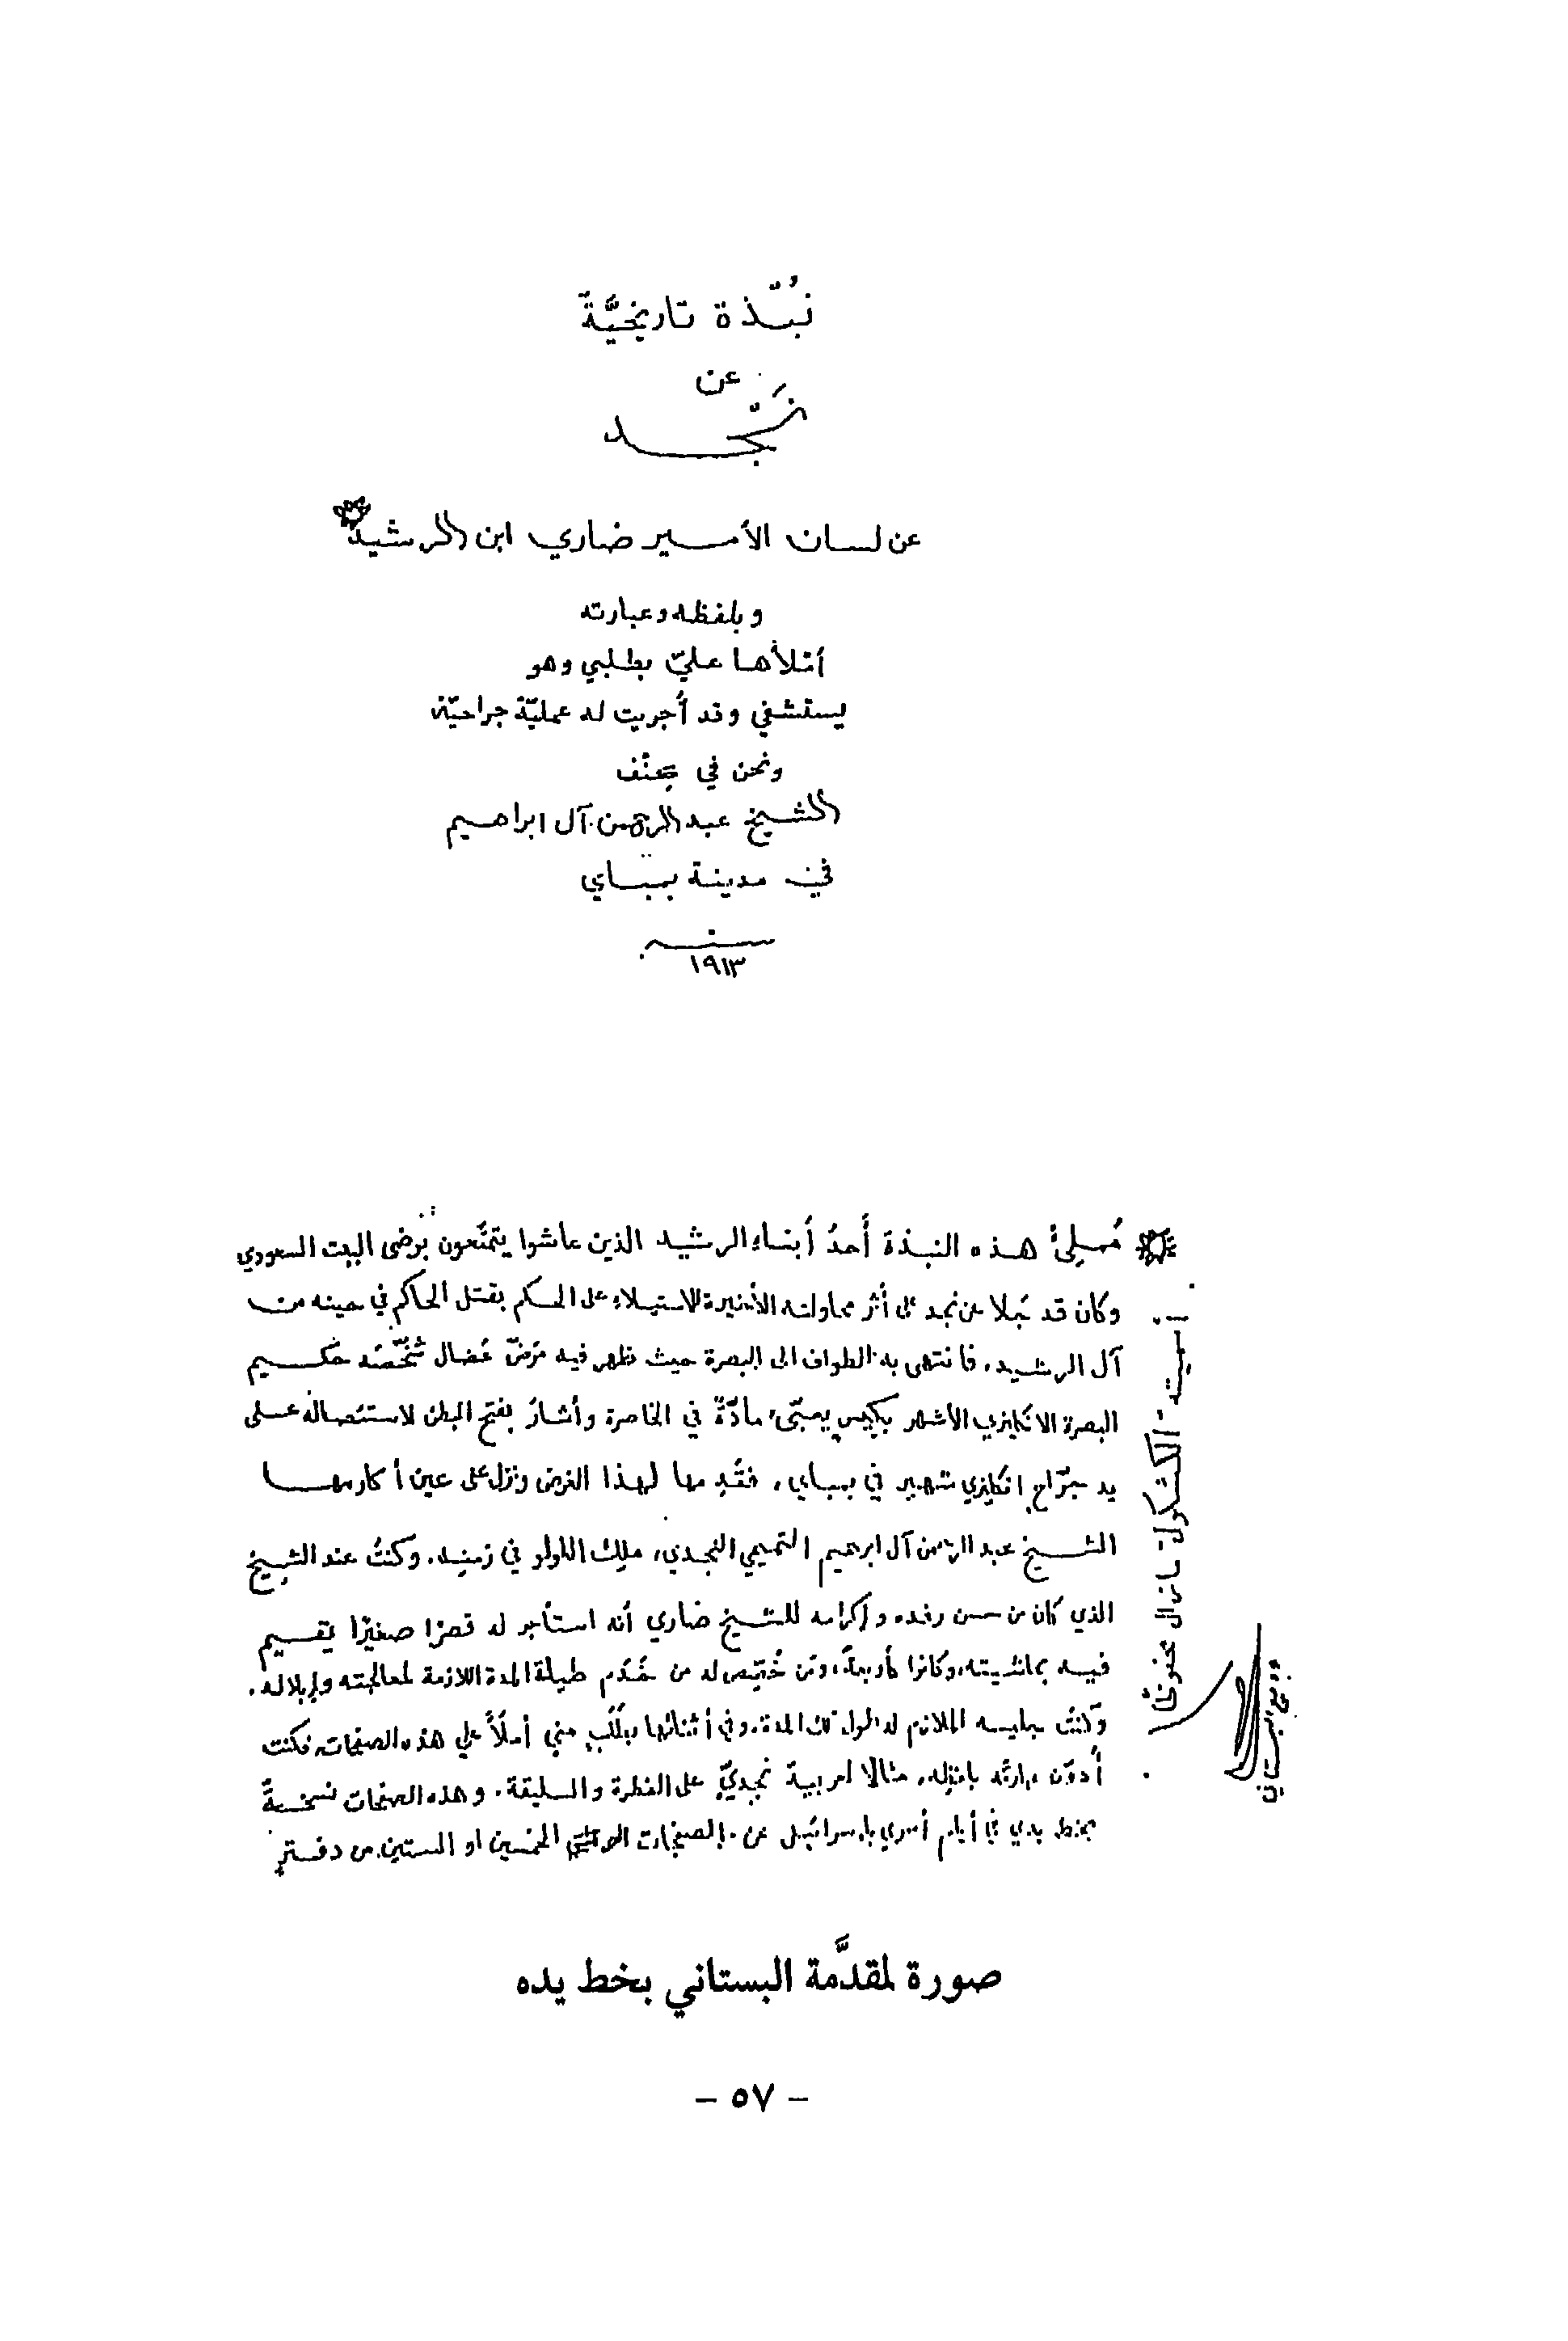 نُبْذة تاريخيَّة
عن
نَجْد
عن لسان الأمير ضاري ابن الرشيد
وبلفظه وعبارته
أملأها عليّ بطلبي وهو
يستشفي وقد أُجريت له عمليّة جراحيّة
ونحن في
الشيخ عبد الرحمن آل ابراهيم
في مدينة بمباي
سنة
١٩١٣
مُملِئُ هذه النبذة أَحدُ أبناءِ الرشيد الذين عاشوا يتمتّعون برضى البيت السعودي
وكان قد جَلا عن نجد على أثر محاولته الأخيرة للاستيلاءِ على الحكم بقتل الحاكم في حينه من
آل الرشيد، فانتهى به الطواف الى البصرة حيث ظهر فيه مرضٌ عُضال شخّصَه حكيم
البصرة الانكليزي الأشهر مادّةً في الخاصرة وأشارَ بفتح البطن لاستئصاله على
يد جرّاحٍ انكليزي شهير في بمباي، فقَدِمها لهذا الغرض ونزل على عين أكارمها
الشيخ عبد الرحمن آل ابرهيم التميمي النجدي، ملِك اللولو في زمنِه. وكنتُ عند الشيخ
الذي كان من حسن رفده وإكرامه للشيخ ضاري أنه استأجر له قصرًا صغيرًا يقيم
فيه بحاشيته، وكانوا أربعةً، ومَن خُصّص له من خَدَم طيلة المدة اللازمة لمعالجته وإبلاله.
وكنتُ جليسه الملازم له طول تلك المدة، وفي أثنائها بطَلَبٍ مني أملأَ علي هذه الصفحات، فكنت
أُدوّن عبارته بلفظه، مثالًا لعربية نجديّ على الفطرة والسليقة. وهذه الصفحات نسخةٌ
بخط يدي في أيام أسري بإسرائيل عن الصفحات الخمسين او الستين من دفترٍ
اسميته "الكشكول" ما زال محفوظًا
وديع البستاني
صورة لمقدَّمة البستاني بخط يده
– ٥٧ –